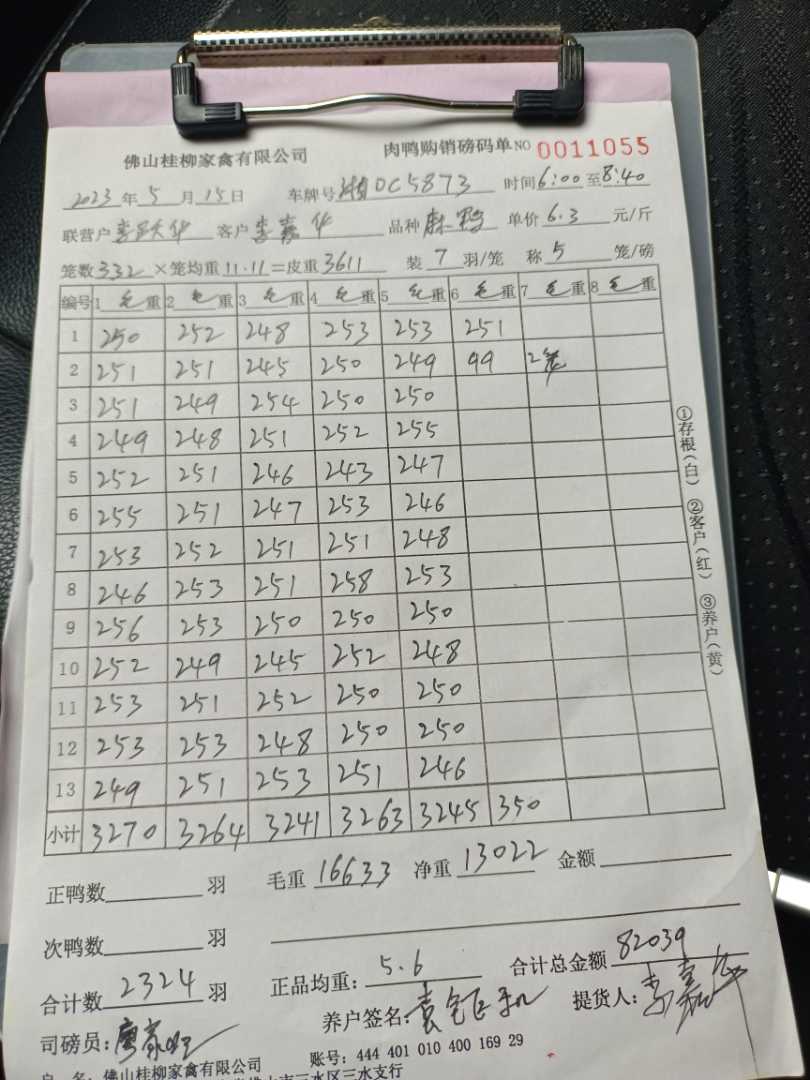 佛山桂柳家禽有限公司 肉鸭购销磅码单NO 0011055
2023年5月15日 车牌号湘DC5873 时间6:00至8:40
联营户 客户李嘉华 品种麻鸭 单价6.3元/斤
笼数332×笼均重11.11=皮重3611 装7羽/笼 称5笼/磅
编号 1毛重 2毛重 3毛重 4毛重 5毛重 6毛重 7毛重 8毛重
1 250 252 248 253 253 251
2 251 251 245 250 249 99 2笼
3 251 249 254 250 250
4 249 248 251 252 255
5 252 251 246 243 247
6 255 251 247 253 246
7 253 252 251 251 248
8 246 253 251 258 253
9 256 253 250 250 250
10 252 249 245 252 248
11 253 251 252 250 250
12 253 253 248 250 250
13 249 251 253 251 246
小计 3270 3264 3241 3263 3245 350
正鸭数 羽 毛重16633 净重13022 金额
次鸭数 羽
合计数2324羽 正品均重：5.6 合计总金额82039
司磅员： 养户签名： 提货人：李嘉华
户 名：佛山桂柳家禽有限公司 账号：444 401 010 400 169 29
佛山市三水区三水支行
①存根(白) ②客户(红) ③养户(黄)